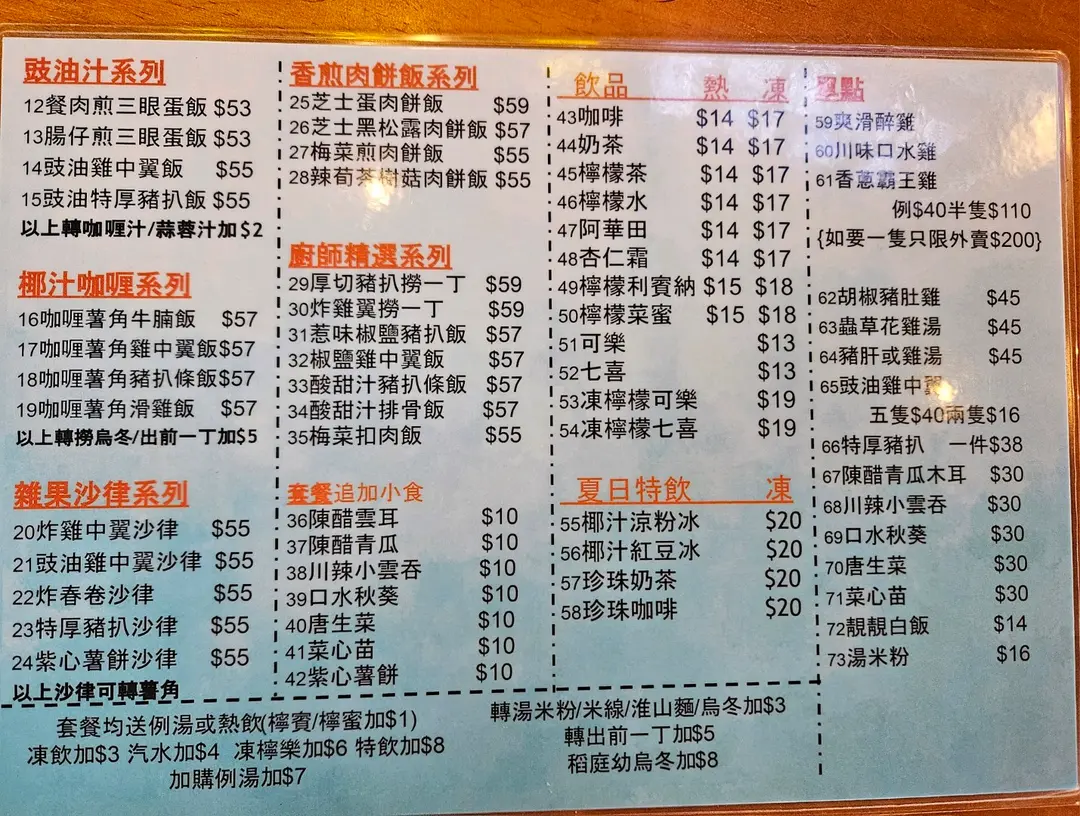 豉油汁系列
12餐肉煎三眼蛋飯 $53
13腸仔煎三眼蛋飯 $53
14豉油雞中翼飯 $55
15豉油特厚豬扒飯 $55
以上轉咖喱汁/蒜蓉汁加$2
椰汁咖喱系列
16咖喱薯角牛腩飯 $57
17咖喱薯角雞中翼飯$57
18咖喱薯角豬扒條飯$57
19咖喱薯角滑雞飯 $57
以上轉撈烏冬/出前一丁加$5
雜果沙律系列
20炸雞中翼沙律 $55
21豉油雞中翼沙律 $55
22炸春卷沙律 $55
23特厚豬扒沙律 $55
24紫心薯餅沙律 $55
以上沙律可轉薯角
香煎肉餅飯系列
25芝士蛋肉餅飯 $59
26芝士黑松露肉餅飯 $57
27梅菜煎肉餅飯 $55
28辣荀茶樹菇肉餅飯 $55
廚師精選系列
29厚切豬扒撈一丁 $59
30炸雞翼撈一丁 $59
31惹味椒鹽豬扒飯 $57
32椒鹽雞中翼飯 $57
33酸甜汁豬扒條飯 $57
34酸甜汁排骨飯 $57
35梅菜扣肉飯 $55
套餐追加小食
36陳醋雲耳 $10
37陳醋青瓜 $10
38川辣小雲吞 $10
39口水秋葵 $10
40唐生菜 $10
41菜心苗 $10
42紫心薯餅 $10
飲品 熱 凍
43咖啡 $14 $17
44奶茶 $14 $17
45檸檬茶 $14 $17
46檸檬水 $14 $17
47阿華田 $14 $17
48杏仁霜 $14 $17
49檸檬利賓納 $15 $18
50檸檬菜蜜 $15 $18
51可樂 $13
52七喜 $13
53凍檸檬可樂 $19
54凍檸檬七喜 $19
夏日特飲 凍
55椰汁涼粉冰 $20
56椰汁紅豆冰 $20
57珍珠奶茶 $20
58珍珠咖啡 $20
單點
59爽滑醉雞
60川味口水雞
61香蔥霸王雞
例$40半隻$110
{如要一隻只限外賣$200}
62胡椒豬肚雞 $45
63蟲草花雞湯 $45
64豬肝或雞湯 $45
65豉油雞中翼
五隻$40兩隻$16
66特厚豬扒 一件$38
67陳醋青瓜木耳 $30
68川辣小雲吞 $30
69口水秋葵 $30
70唐生菜 $30
71菜心苗 $30
72靚靚白飯 $14
73湯米粉 $16
套餐均送例湯或熱飲(檸賓/檸蜜加$1)
凍飲加$3 汽水加$4 凍檸樂加$6 特飲加$8
加購例湯加$7
轉湯米粉/米線/淮山麵/烏冬加$3
轉出前一丁加$5
稻庭幼烏冬加$8